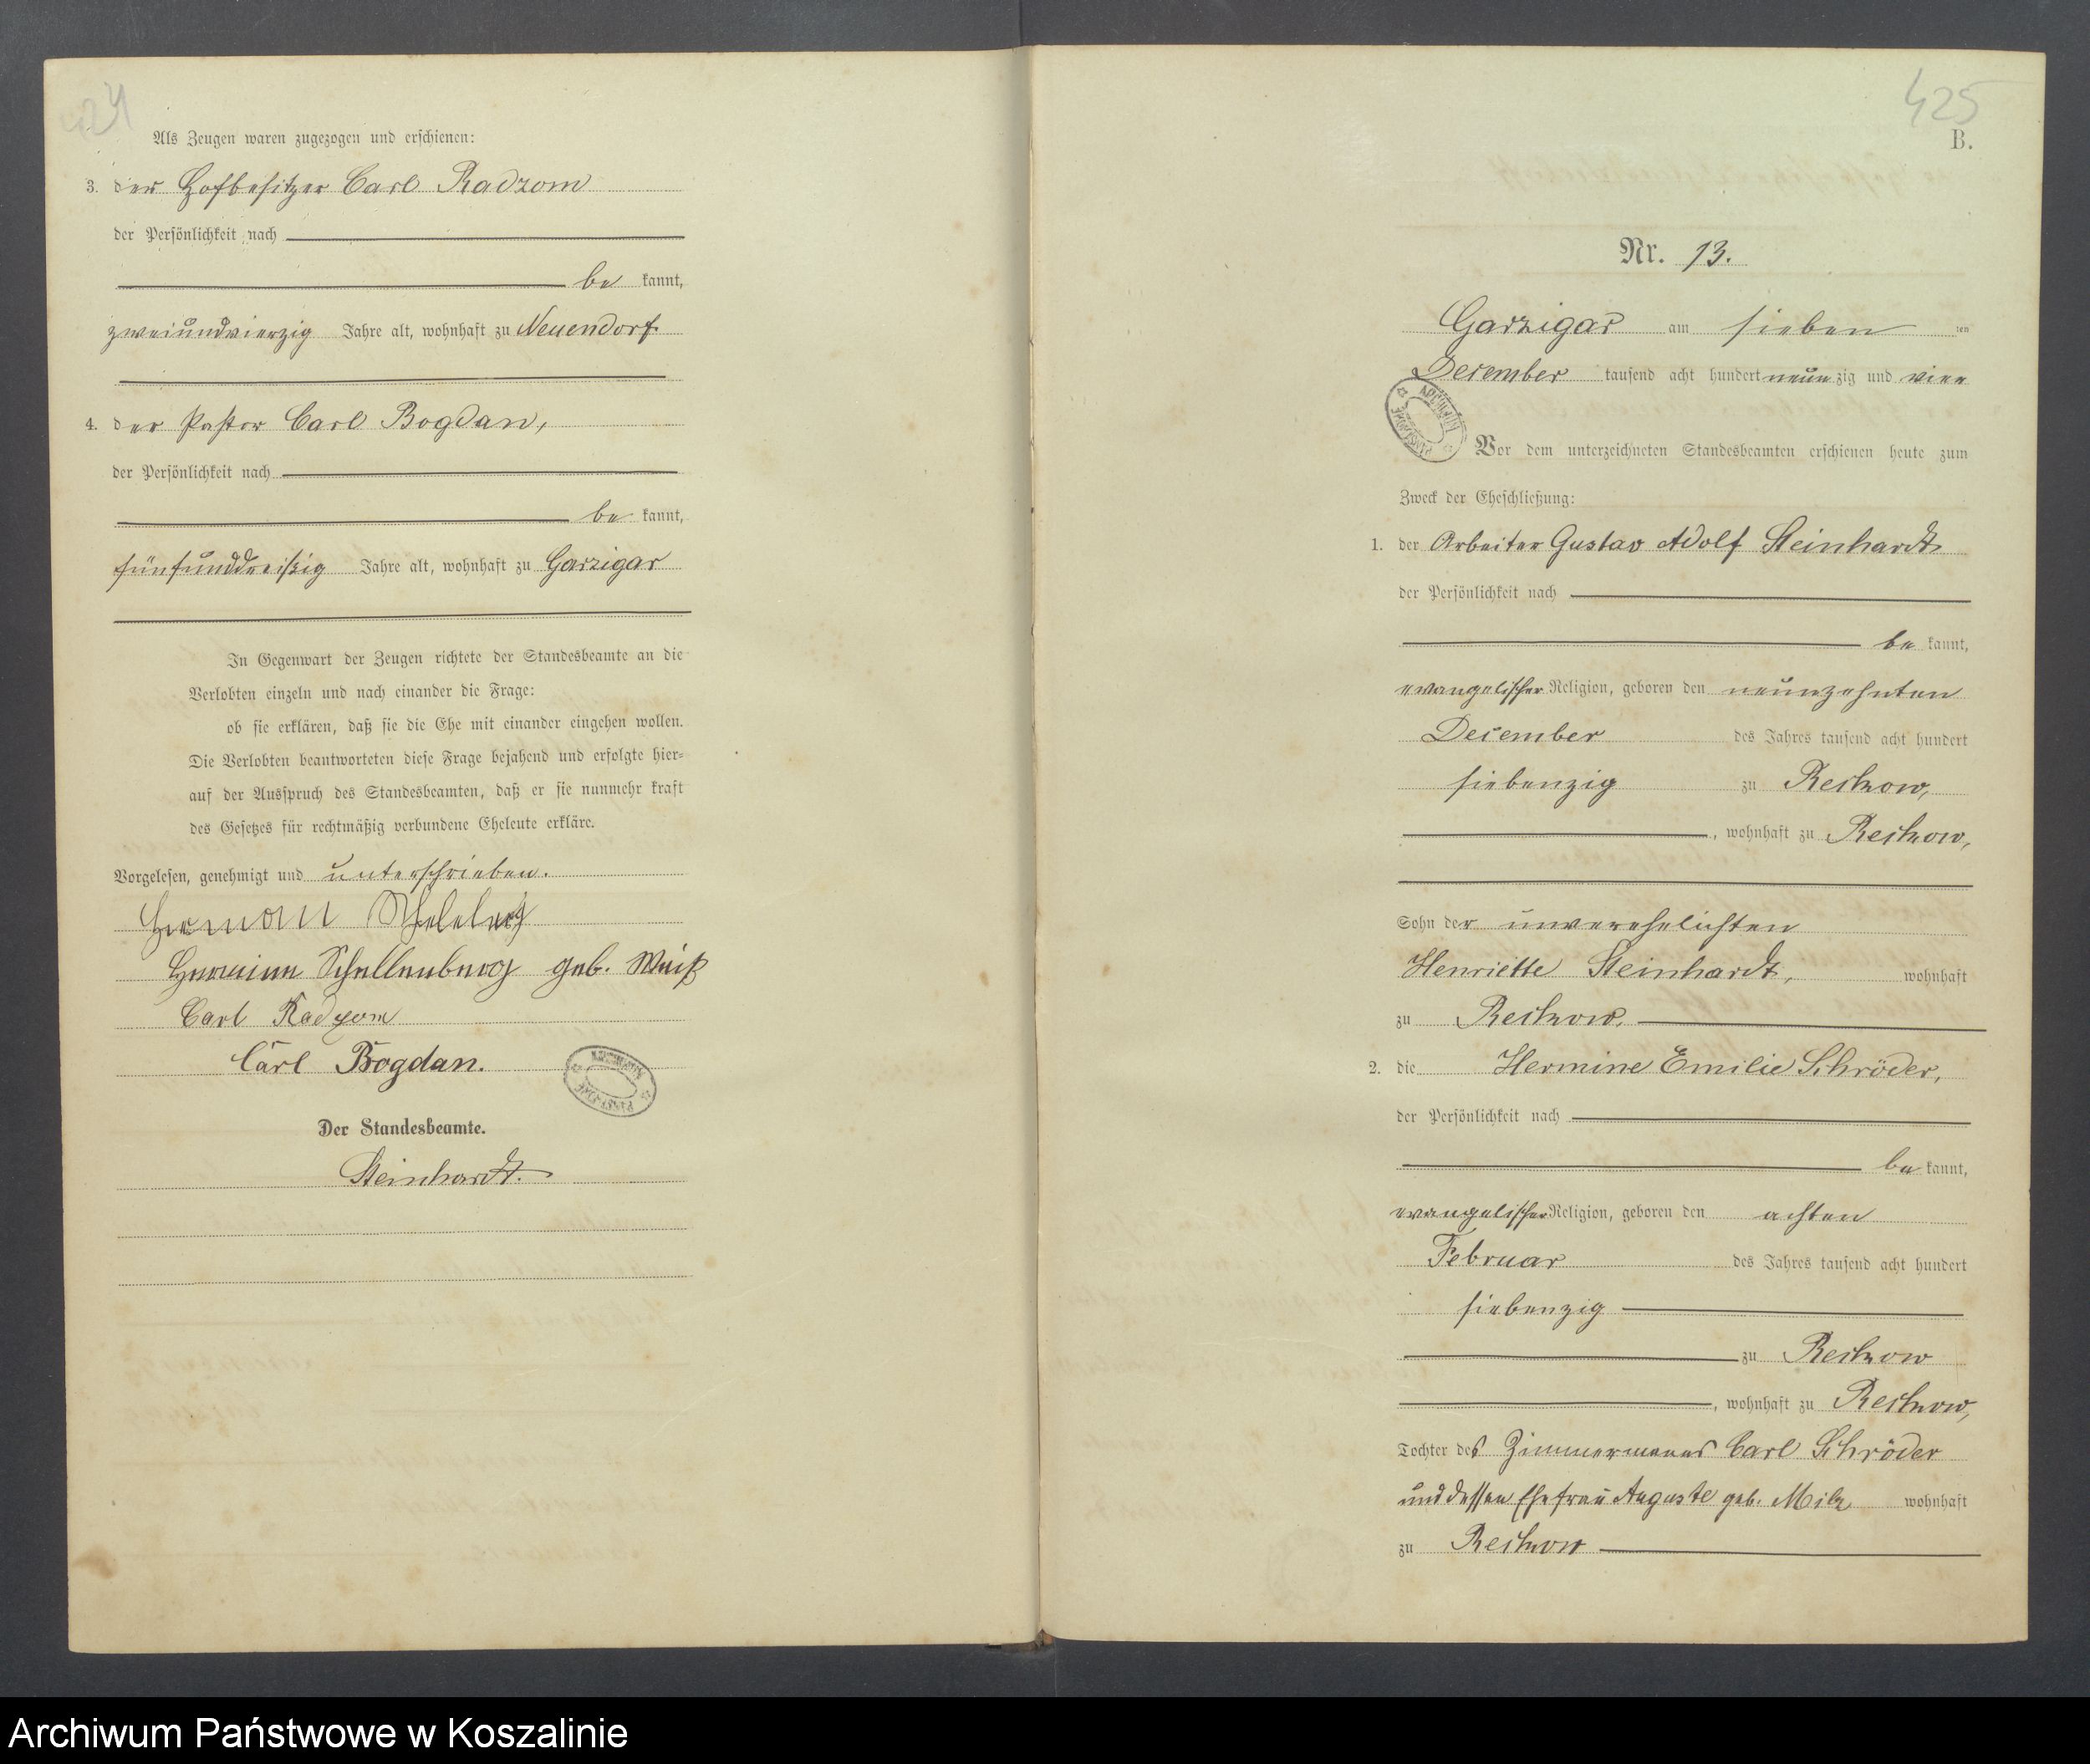 424
Als Zeugen waren zugezogen und erschienen:
3. der Hofbesitzer Carl Radzom
der Persönlichkeit nach
be kannt,
zweiundvierzig Jahre alt, wohnhaft zu Neuendorf
4. der Pastor Carl Bogdan,
der Persönlichkeit nach
be kannt,
fünfunddreißig Jahre alt, wohnhaft zu Garzigar
In Gegenwart der Zeugen richtete der Standesbeamte an die
Verlobten einzeln und nach einander die Frage:
ob sie erklären, daß sie die Ehe mit einander eingehen wollen.
Die Verlobten beantworteten diese Frage bejahend und erfolgte hier-
auf der Ausspruch des Standesbeamten, daß er sie nunmehr kraft
des Gesetzes für rechtmäßig verbundene Eheleute erkläre.
Vorgelesen, genehmigt und unterschrieben.
Herman
Hermine Schellenberg geb. Weiß
Carl Radzom
Carl Bogdan.
Der Standesbeamte.
Steinhardt.
425
B.
Nr. 13.
Garzigar am sieben ten
December tausend acht hundert neun zig und vier
Vor dem unterzeichneten Standesbeamten erschienen heute zum
Zweck der Eheschließung:
1. der Arbeiter Gustav Adolf Steinhardt
der Persönlichkeit nach
be kannt,
evangelischer Religion, geboren den neunzehnten
December des Jahres tausend acht hundert
siebenzig zu Reckow,
, wohnhaft zu Reckow,
Sohn der unverehelichten
Henriette Steinhardt, wohnhaft
zu Reckow,
2. die Hermine Emilie Schröder,
der Persönlichkeit nach
be kannt,
evangelischer Religion, geboren den achten
Februar des Jahres tausend acht hundert
siebenzig
zu Reckow
, wohnhaft zu Reckow,
Tochter des Zimmermanns Carl Schröder
und dessen Ehefrau Auguste geb. Milz wohnhaft
zu Reckow
Archiwum Państwowe w Koszalinie